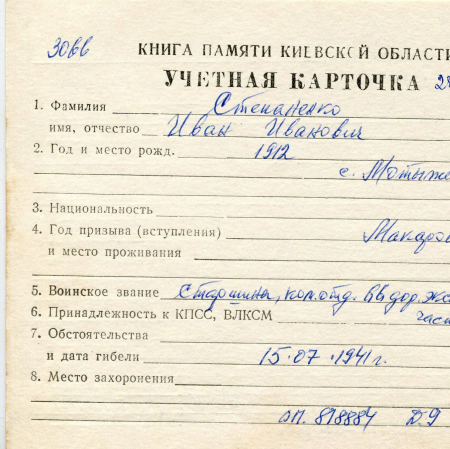 3066 КНИГА ПАМЯТИ КИЕВСКОЙ ОБЛАСТИ
УЧЕТНАЯ КАРТОЧКА
1. Фамилия Степаненко
имя, отчество Иван Иванович
2. Год и место рожд. 1912
с. Мотыже
3. Национальность
4. Год призыва (вступления) Макаров
и место проживания
5. Воинское звание Старшина, ком. отд.
6. Принадлежность к КПСС, ВЛКСМ част
7. Обстоятельства
и дата гибели 15.07.1941г.
8. Место захоронения
оп. 818884 д. 9